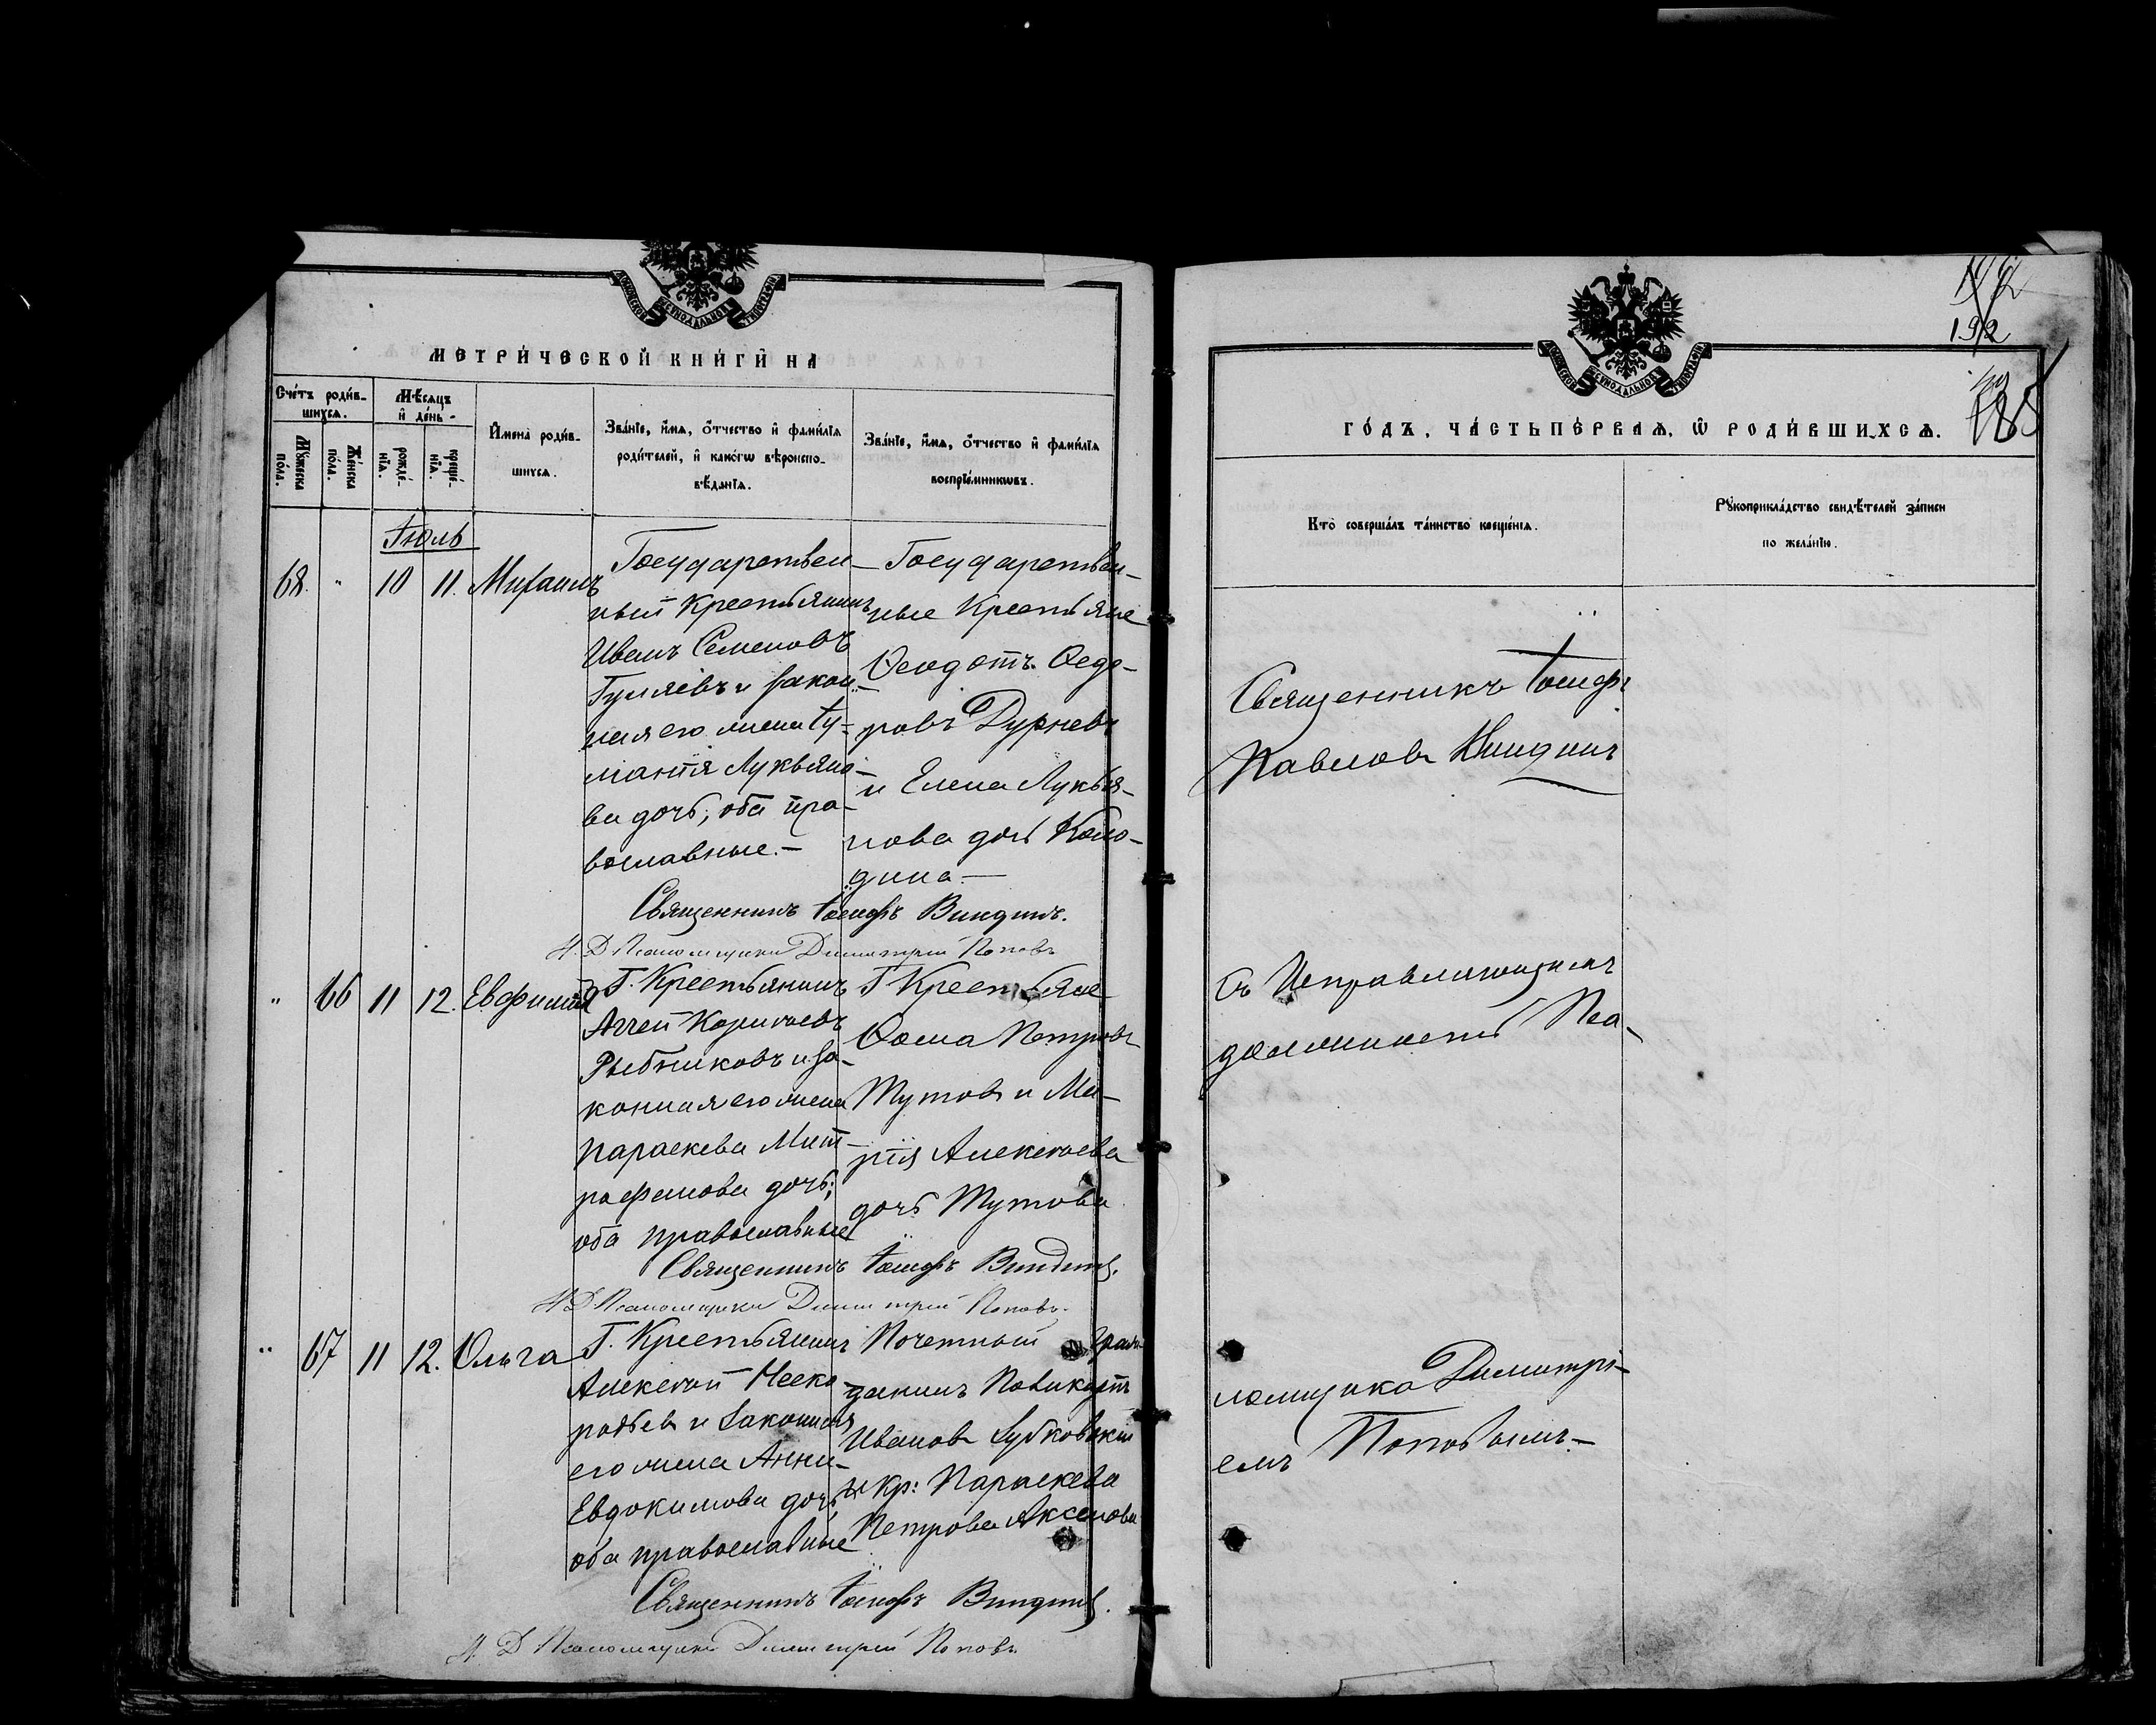 МЕТРИЧЕСКОЙ КНИГИ НА
Счетъ родив-
шихся.
Мѣсяцъ
и день.
Имена родив-
шихся.
Званіе, имя, отчество и фамилія
родителей, и какогѡ вѣроиспо-
вѣданія.
Званіе, имя, отчество и фамилія
воспріемникѡвъ.
Мужеска
пола.
Женска
пола.
рожде-
нія.
креще-
нія.
Іюль
68. " 10 11. Михаилъ
Государствен-
ный Крестьянинъ
Иванъ Семеновъ
и закон-
ная его жена Іу-
ліанія Лукьяно-
ва дочь, оба пра-
вославные.-
Государствен-
ные Крестьяне
Ѳеодотъ Ѳедо-
ровъ Дурневъ
и Елена Лукья-
нова дочь
дина-
Священникъ Іосифъ
И. Д. Псаломщика Димитрій Поповъ
" 66 11 12. Евфимія
Г. Крестьянинъ
Аггей
Рыбниковъ и за-
конная его жена
Параскева Мит-
рофанова дочь;
оба православные
Г Крестьяне
Ѳома Петровъ
Тутовъ и Ма-
рія Алексѣева
дочь Тутова
Священникъ Іосифъ
И Д Псаломщика Димитрій Поповъ.
" 67 11 12. Ольга
Г. Крестьянинъ
Алексѣй
и законная
его жена Анна
Евдокимова дочь
оба православные
Почетный Граж-
данинъ Поликарпъ
Ивановъ
и Кр: Параскева
Петрова Аксенова
Священникъ Іосифъ
И. Д Псаломщика Димитрій Поповъ.
192
ГОДЪ, ЧАСТЬ ПЕРВАЯ, Ѡ РОДИВШИХСЯ.
Кто совершалъ таинство крещенія.
Рꙋкоприкладство свидѣтелей записи
по желанію.
Священникъ Іосифъ
Павловъ
съ Исправляющимъ
должность Пса-
ломщика Димитрі-
емъ Поповымъ-